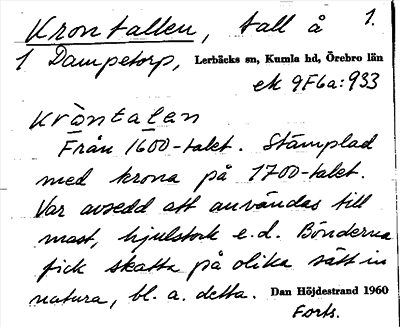 Krontallen, tall å 1.
1 Dampetorp, Lerbäcks sn, Kumla hd, Örebro län
ek 9F6a:933
kròntalen
Från 1600-talet. Stämplad
med krona på 1700-talet.
Var avsedd att användas till
mast, hjulstock e.d. Bönderna
fick skatta på olika sätt in
natura, bl. a. detta. Dan Höjdestrand 1960
Forts.